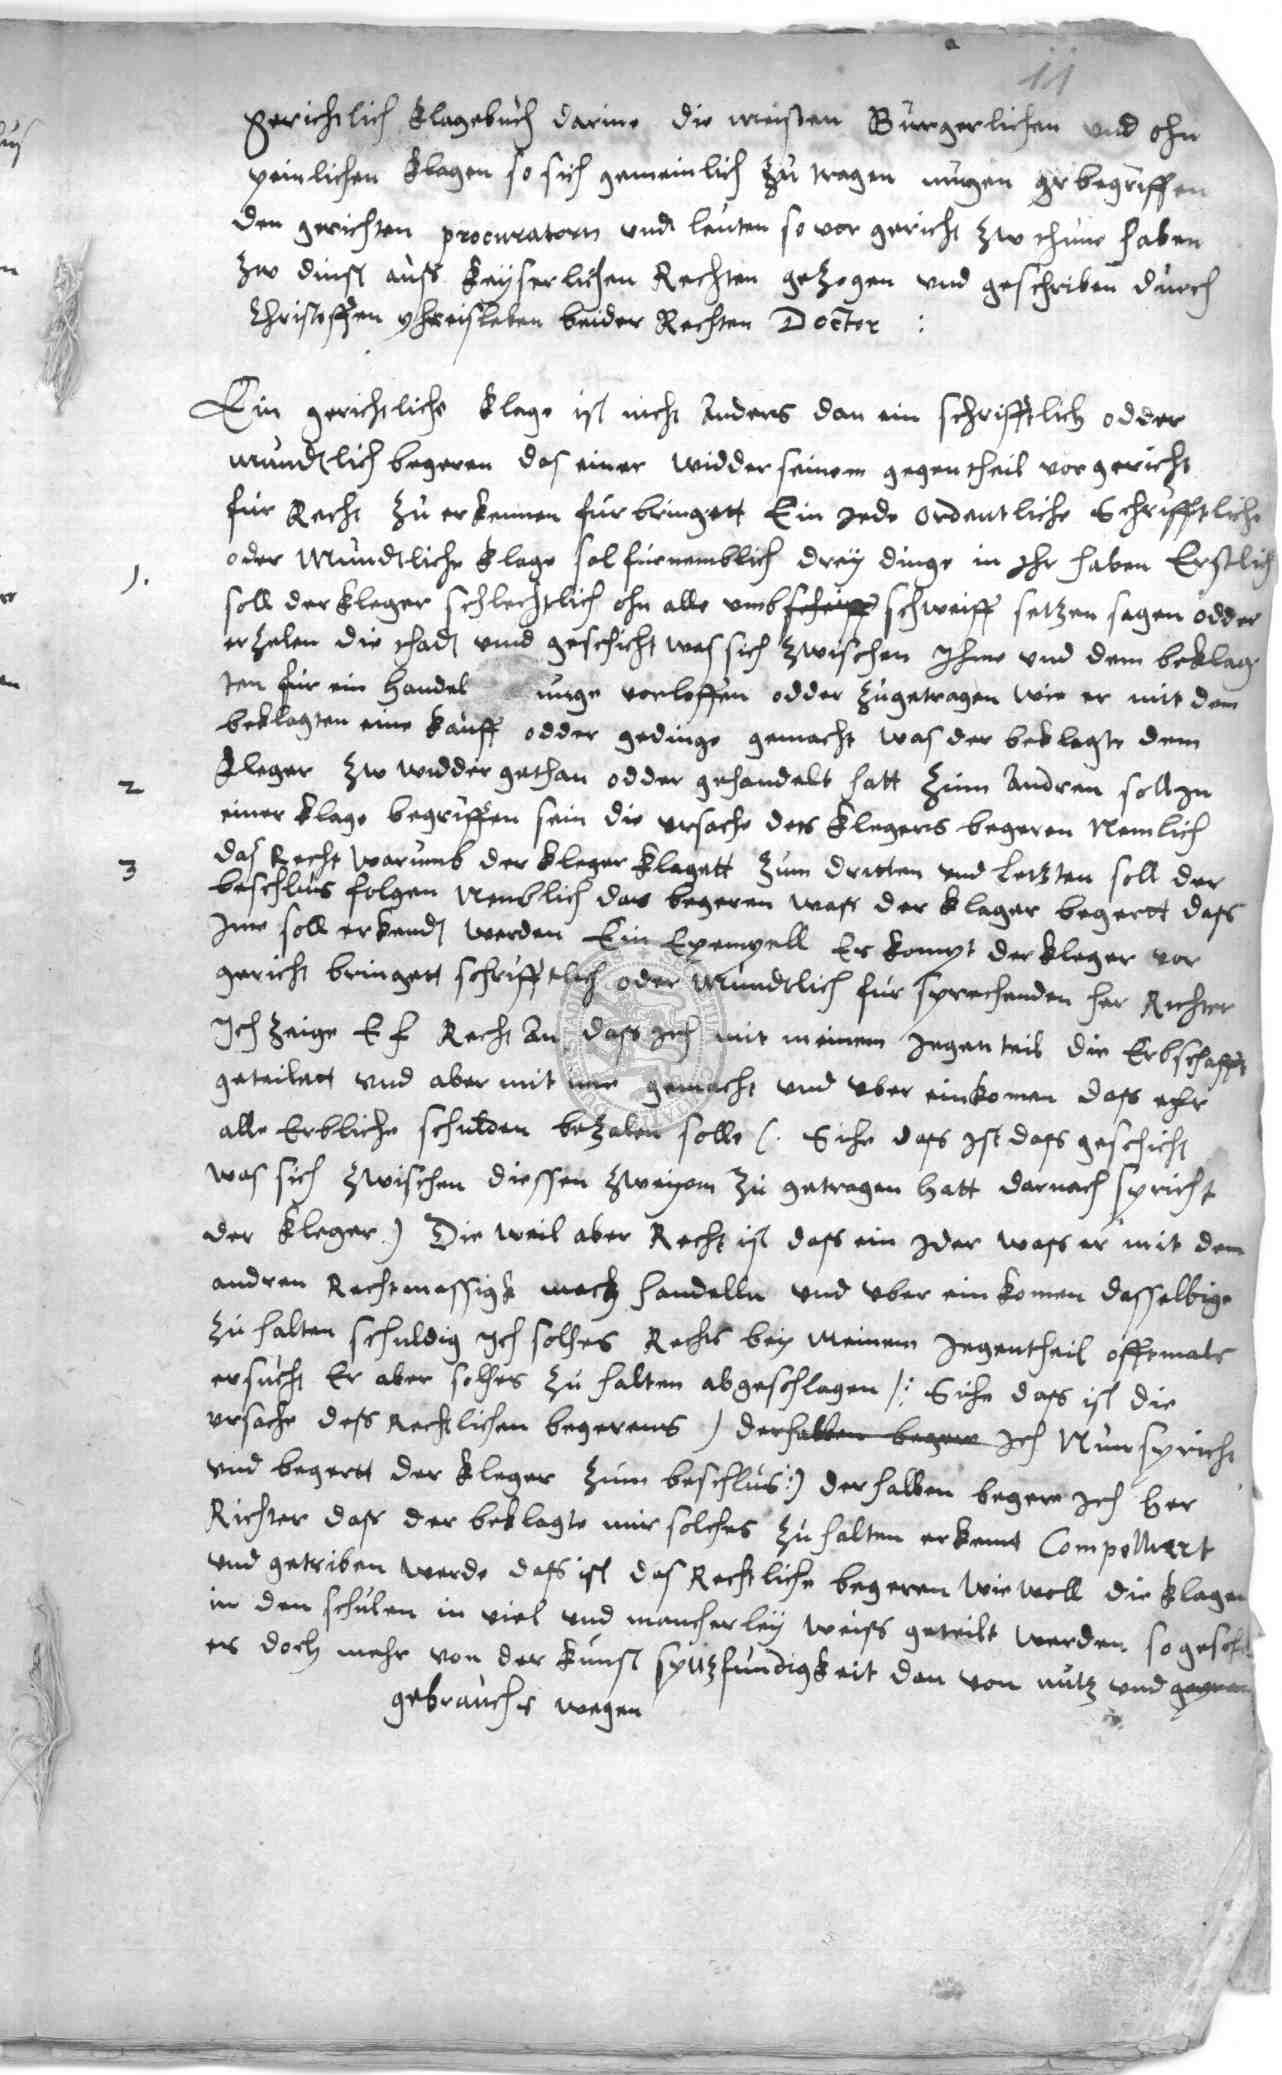 11
gerichtlich klagebuch darine die meisten Burgerlichen und ohn
peinlichen klagen so sich gemeinlich zu tragen mugen begriffen
den gerichten procuratorn und leuten so vor gericht zw thune haben
zw dinst auss keyserlichen Rechten gezogen und geschriben durch
Christoffen yhreisleben beider Rechten Doctor :
Ein gerichtliche klage ist nicht Anders dan ein schrifftlich odder
mundtlich begeren das einer widder seinem gegentheil vor gericht
fur Recht zu erkennen furbringett Ein Jede Ordentliche Schrifftliche
1. oder Mundtliche klage sol furnemblich drey dinge in Ihr haben Erstlich
soll der kleger schlechtlich ohn alle umbscheiff schweiff setzen sagen odder
erzelen die thadt unnd geschicht was sich zwischen Ihme und dem beklag
ten fur ein handel unge vorloffen odder zugetragen wie er mit dem
beklagten eine kauff odder gedinge gemacht was der beklagte dem
2 kleger zw widder gethan odder gehandelt hatt Zum Andren soll In
einer klage begriffen sein die ursache des klegers begeren Nemlich
3 das Recht warumb der kleger klagett Zum dritten und letzten soll der
beschlus folgen Nemblich das begeren wass der klager begertt dass
Ime soll erkendt werden Ein Exempell Es kompt der kleger vor
gericht bringett schrifftlich oder Mundtlich fur sprechenden her Richter
Ich zeige E f Recht An dass Ich mit meinem Jegenteil die Erbschafft
geteilett und aber mit mir gemacht und uber einkomen dass ehr
alle Erbliche schulden bezalen solle (. Sihe dass Ist dass geschicht
was sich zwischen diessen zweyen zu getragen hatt darnach spricht
der kleger .) Die weil aber Recht ist dass ein Jder wass er mit dem
andren Rechtmessigk handelln und uber ein komen dasselbige
zu halten schuldig Ich solhes Rechts bey Meinem Jegentheil offtmals
ersucht Er aber solhes zu halten abgeschlagen /: Sihe dass ist die
ursache dess Rechtlichen begerens ) derhalben begere Ich Nun spricht
und begertt der kleger zum beschlus :) derhalben begere Ich Her
Richter dass der beklagte mir solches zu halten erkennt Compelliert
und getriben werde dass ist das Rechtliche begeren Wie woll die klagen
in den schulen in viel und mancherley weiss geteilt werden so geschi
es doch mehr von der kunst spitzfundigkeit dan von nutz und
gebrauchs wegen